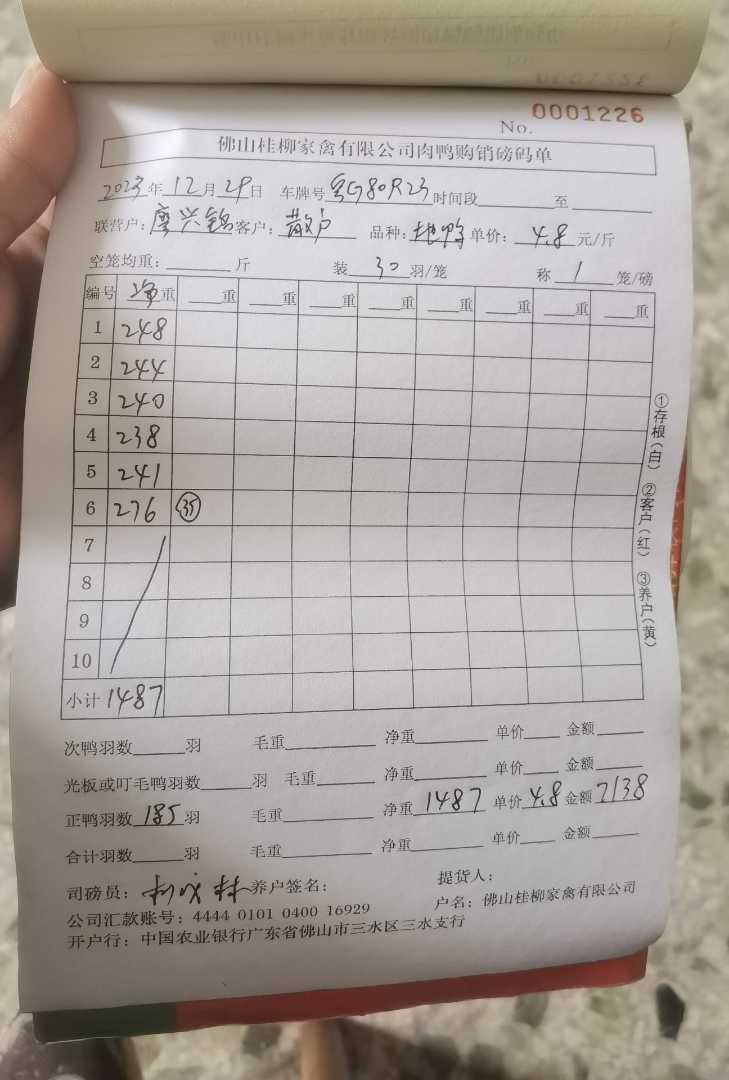 No. 0001226
佛山桂柳家禽有限公司肉鸭购销磅码单
2023年12月29日 车牌号粤G80R23时间段 至
联营户: 廖兴锦 客户: 散户 品种: 土鸭 单价: 4.8 元/斤
空笼均重: 斤 装 30 羽/笼 称 1 笼/磅
编号 净重 重 重 重 重 重 重 重 重
1 248
2 244
3 240
4 238
5 241
6 276 35
7
8
9
10
小计 1487
①存根(白) ②客户(红) ③养户(黄)
次鸭羽数 羽 毛重 净重 单价 金额
光板或叮毛鸭羽数 羽 毛重 净重 单价 金额
正鸭羽数 185 羽 毛重 净重 1487 单价 4.8 金额 7138
合计羽数 羽 毛重 净重 单价 金额
司磅员: 养户签名: 提货人:
公司汇款账号: 4444 0101 0400 16929 户名: 佛山桂柳家禽有限公司
开户行: 中国农业银行广东省佛山市三水区三水支行